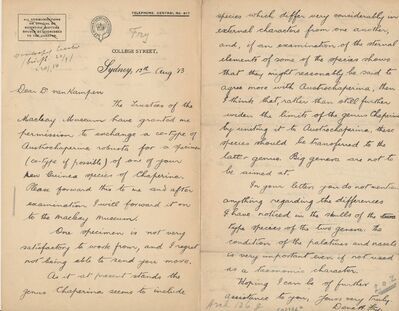 ALL COMMUNICATIONS
TO BE ADDRESSED
TO THE CURATOR.
TELEPHONE, CENTRAL, No. 917
Fry
COLLEGE STREET,
Sydney, 12th Aug 13
Dear Dr van Kampen
The Trustees of the
Macleay Museum have granted me
permission to exchange a co-type of
Austrochaperina robusta for a specimen
(co-type if possible) of one of your
New Guinea species of Chaperina.
Please forward this to me and after
examination I will forward it on
to the Macleay Museum.
One specimen is not very
satisfactory to work from, and I regret
not being able to send you more.
As it at present stands the
genus Chaperina seems to include
species which differ very considerably in
external characters from one another,
and, if an examination of the sternal
elements of some of the species shows
that they might reasonably be said to
agree more with Austrochaperina, then
I think that, rather than still further
widen the limits of the genus Chaperina
by uniting it to Austrochaperina, these
species should be transferred to the
latter genus. Big genera are not to
be aimed at.
In your letter you do not mention
anything regarding the differences
I have noticed in the skulls of the
type species of the two genera. The
condition of the palatines and nasals
is very important even if not used
as a taxonomic character.
Hoping I can be of further
assistance to you,
Yours very truly,
Dene B. Fry